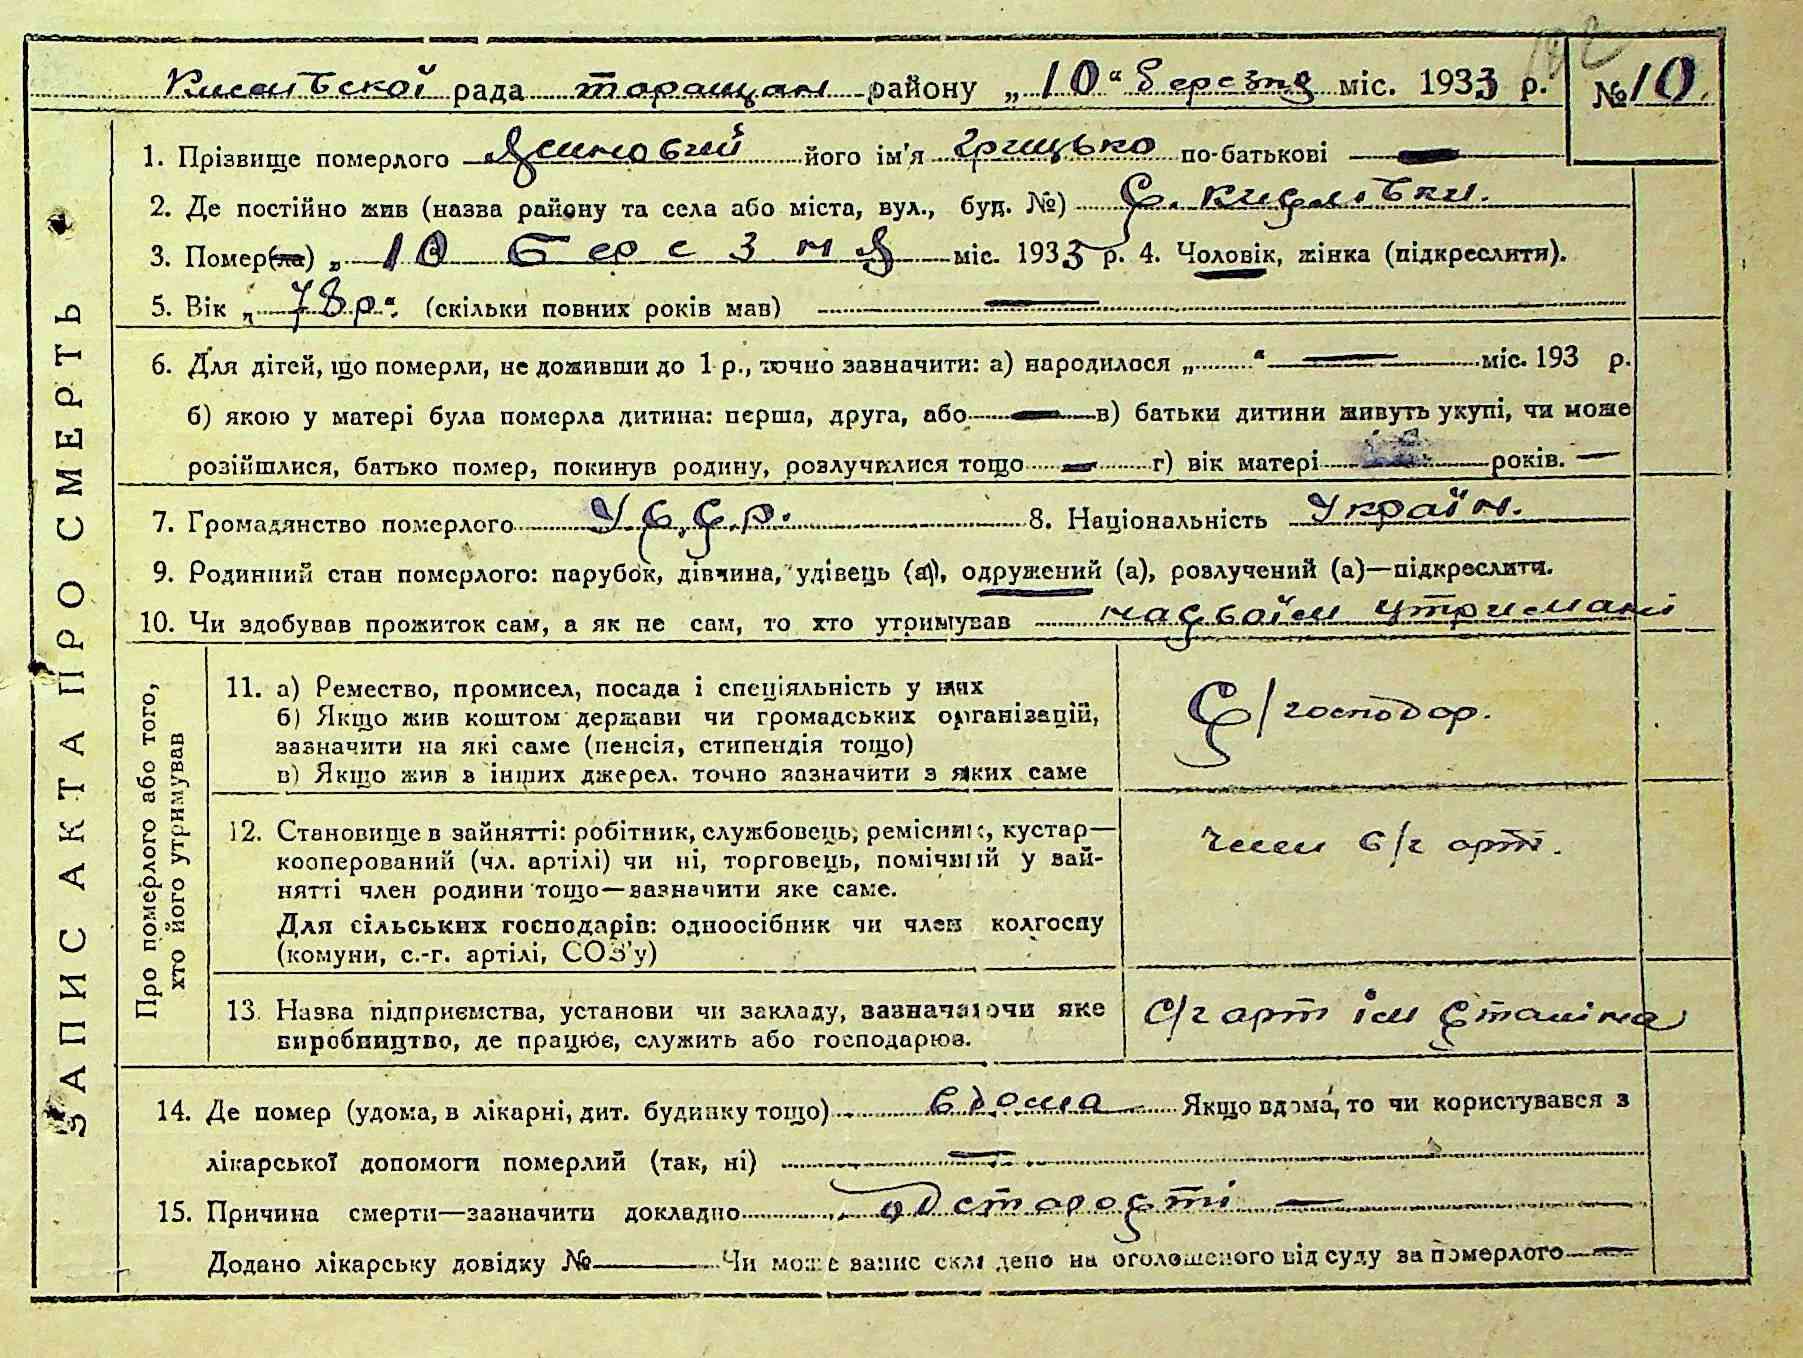 рада таращан району „10“ березня міс. 1933 р. № 10.
ЗАПИС АКТА ПРО СМЕРТЬ
1. Прізвище померлого його ім'я Грицько по-батькові —
2. Де постійно жив (назва району та села або міста, вул., буд. №) С.
3. Помер(ла) „ 10 Березня міс. 1933 р. 4. Чоловік, жінка (підкреслити).
5. Вік „ 78 р.“ (скільки повних років мав) —
6. Для дітей, що померли, не доживши до 1 р., точно зазначити: а) народилося „ “ — міс. 193 р.
б) якою у матері була померла дитина: перша, друга, або — в) батьки дитини живуть укупі, чи може
розійшлися, батько помер, покинув родину, розлучилися тощо — г) вік матері років. —
7. Громадянство померлого У.С.С.Р. 8. Національність Україн.
9. Родинний стан померлого: парубок, дівчина, удівець (а), одружений (а), розлучений (а)—підкреслити.
10. Чи здобував прожиток сам, а як не сам, то хто утримував на своїм утримані
Про померлого або того,
хто його утримував
11. а) Ремество, промисел, посада і спеціяльність у них
б) Якщо жив коштом держави чи громадських організацій,
зазначити на які саме (пенсія, стипендія тощо)
в) Якщо жив в інших джерел. точно зазначити з яких саме
С/господар.
12. Становище в зайнятті: робітник, службовець, ремісник, кустар—
кооперований (чл. артілі) чи ні, торговець, помічний у зай-
нятті член родини тощо—зазначити яке саме.
Для сільських господарів: одноосібник чи член колгоспу
(комуни, с.-г. артілі, СОЗ'у)
член с/г арт.
13. Назва підприємства, установи чи закладу, зазначаючи яке
виробництво, де працює, служить або господарює.
С/г арт ім Сталіна
14. Де помер (удома, в лікарні, дит. будинку тощо) вдома Якщо вдома, то чи користувався з
лікарської допомоги померлий (так, ні) —
15. Причина смерти—зазначити докладно од старости —
Додано лікарську довідку № — Чи може запис складено на оголошеного від суду за померлого —